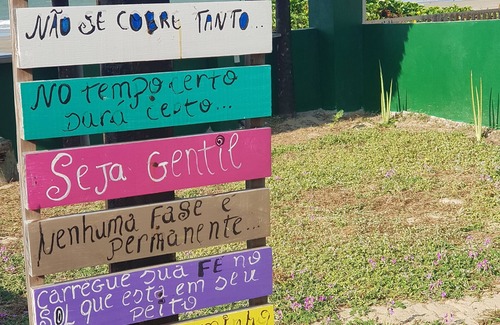 NÃO SE COBRE TANTO...
NO tempo certo
Dará certo...
Seja Gentil
Nenhuma Fase e
permanente...
carregue sua FE no
SOL que esta em seu
peito